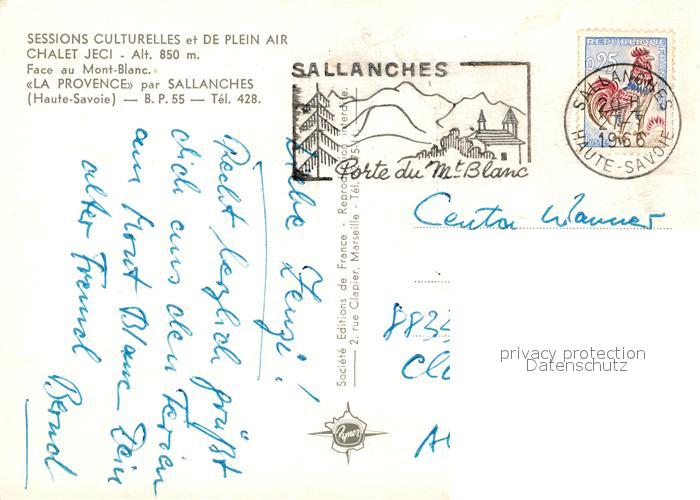 SESSIONS CULTURELLES et DE PLEIN AIR
CHALET JECI - Alt. 850 m.
Face au Mont-Blanc.
«LA PROVENCE» par SALLANCHES
(Haute-Savoie) — B.P. 55 — Tél. 428.
SALLANCHES
Porte du Mt Blanc
0,25
REPUBLIQUE FRANÇAISE
SALLANCHES
1966
HAUTE-SAVOIE
Liebe Zenzi!
Recht herzlich grüßt
dich aus den Ferien
am Mont Blanc Dein
alter Freund
Bernd
Société Editions de France - Reproduction interdite.
2, rue Clapier, Marseille - Tél.
Rymer
Centa Wanner
883
Cl
A
privacy protection
Datenschutz